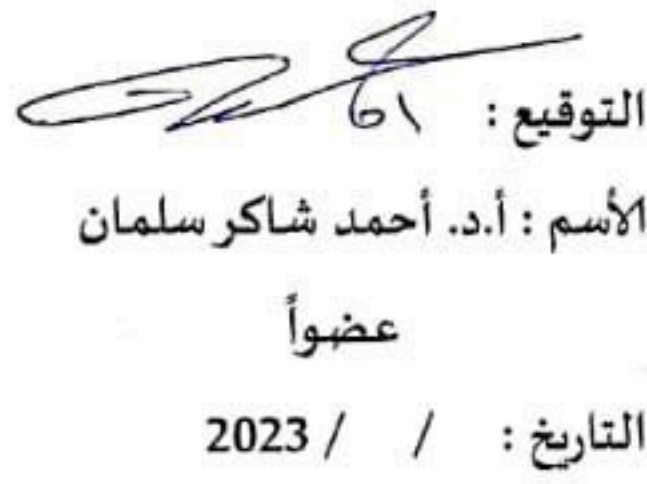 التوقيع :
الأسم : أ.د. أحمد شاكر سلمان
عضواً
التاريخ : / / 2023